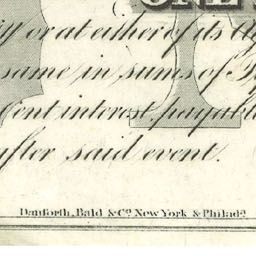 ONE
or at either of its
same in sums of
Cent interest, payable
after said event.
Danforth, Bald & Co. New York & Philada.